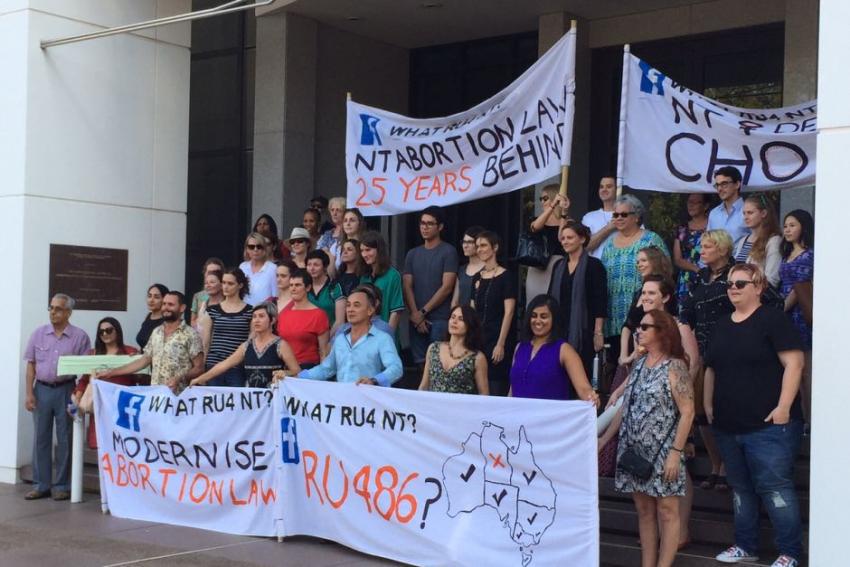 WHAT RU4 NT?
NT ABORTION LAW
25 YEARS BEHIND
WHAT RU4
NT
CHO
WHAT RU4 NT?
MODERNISE
ABORTION LAW
WHAT RU4 NT?
RU486?